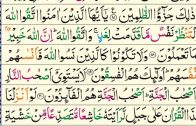 ذٰلِكَ جَزٰٓؤُا الظّٰلِمِيْنَ ۝ يٰٓاَيُّهَا الَّذِيْنَ اٰمَنُوا اتَّقُوا اللّٰهَ
وَلْتَنْظُرْ نَفْسٌ مَّا قَدَّمَتْ لِغَدٍ ۚ وَاتَّقُوا اللّٰهَ ؕ اِنَّ اللّٰهَ خَبِيْرٌۢ
بِمَا تَعْمَلُوْنَ ۝ وَلَا تَكُوْنُوْا كَالَّذِيْنَ نَسُوا اللّٰهَ فَاَنْسٰىهُمْ
اَنْفُسَهُمْ ؕ اُولٰٓئِكَ هُمُ الْفٰسِقُوْنَ ۝ لَا يَسْتَوِىْٓ اَصْحٰبُ النَّارِ
وَاَصْحٰبُ الْجَنَّةِ ؕ اَصْحٰبُ الْجَنَّةِ هُمُ الْفَآئِزُوْنَ ۝ لَوْ اَنْزَلْنَا
الْقُرْاٰنَ عَلٰى جَبَلٍ لَّرَاَيْتَهٗ خَاشِعًا مُّتَصَدِّعًا مِّنْ خَشْيَةِ